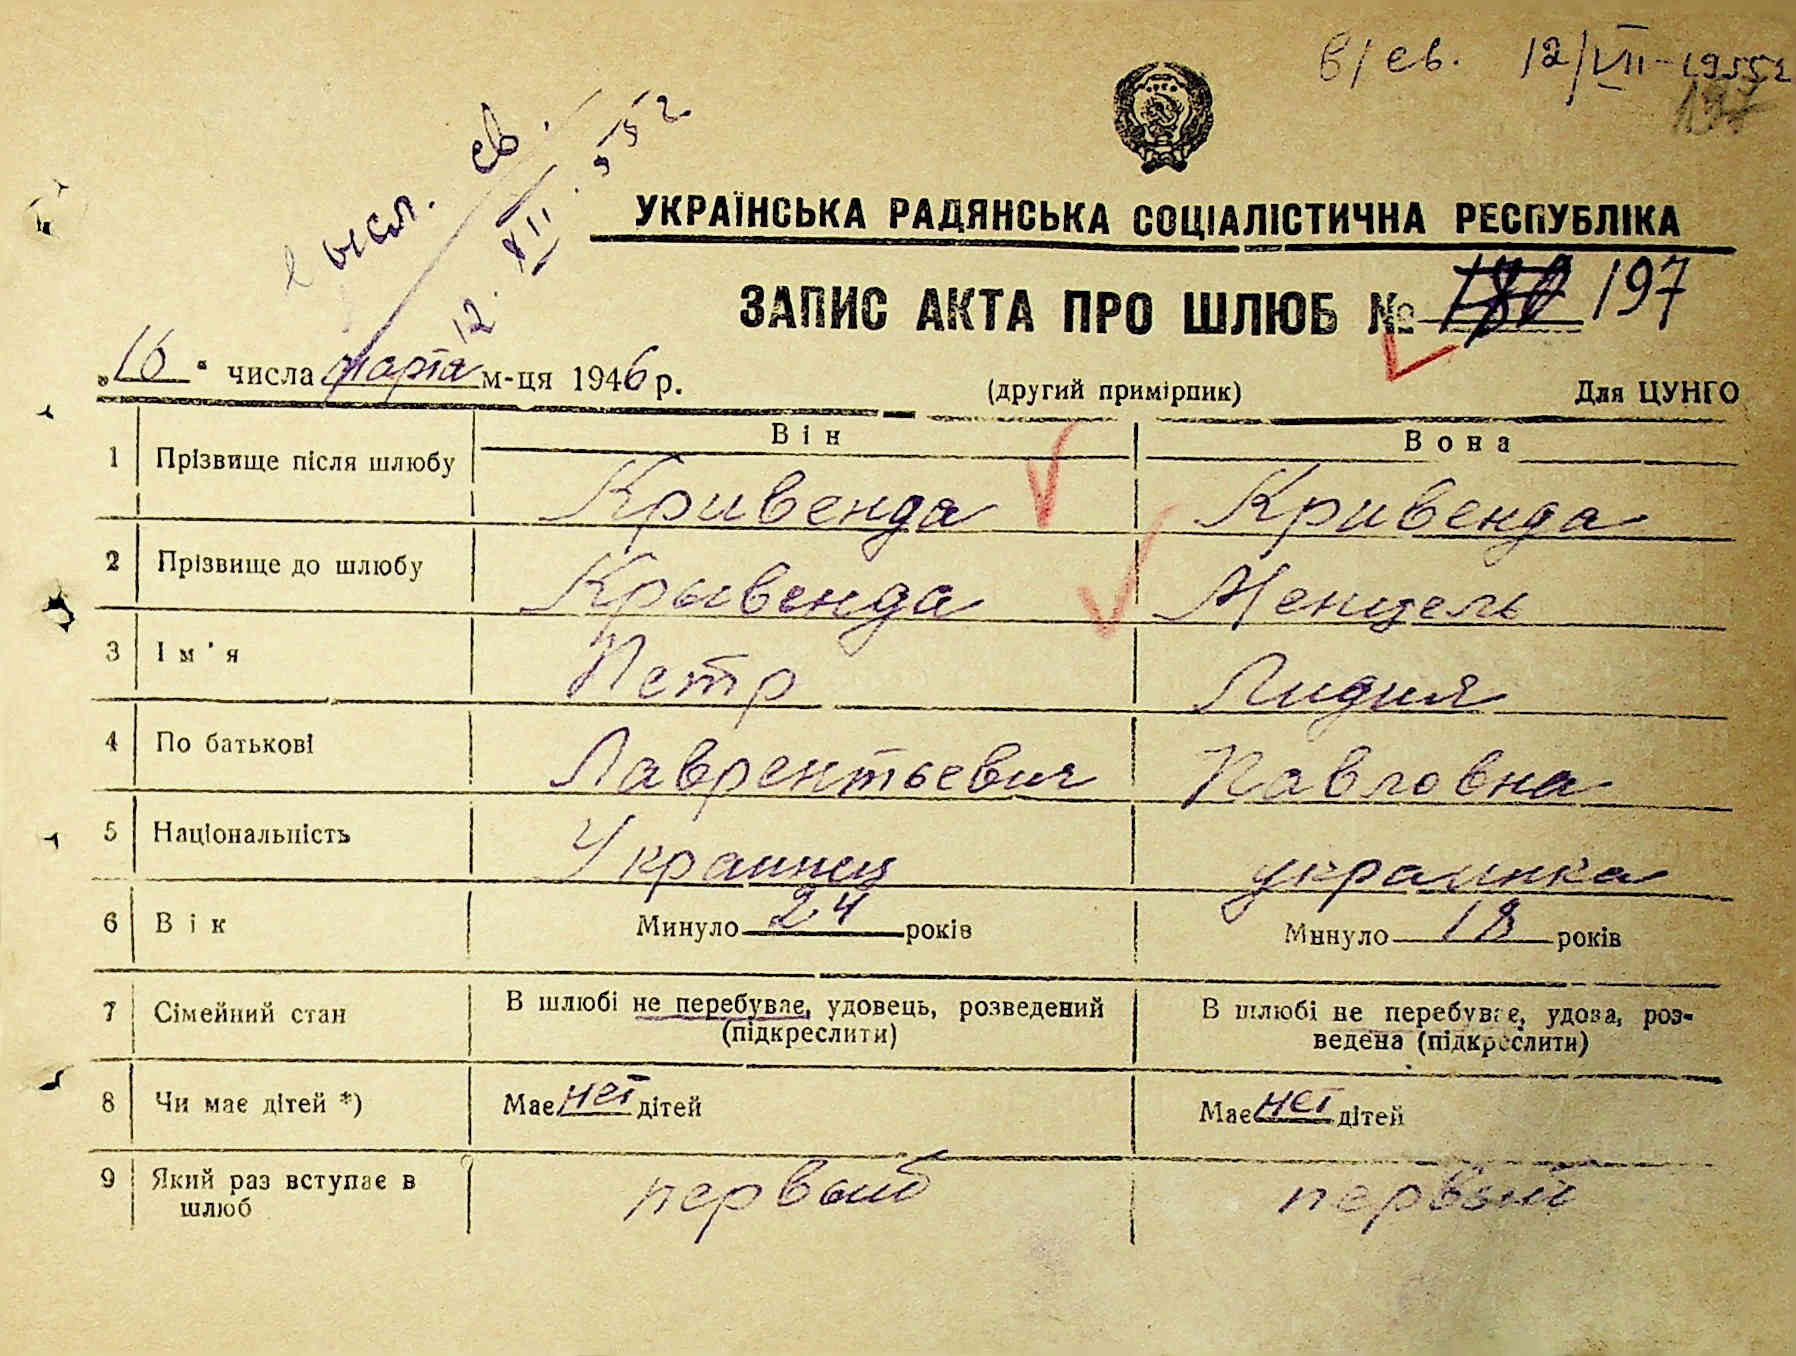 в/св. 12/VII-1955г
197
высл. св.
12. XII. 955г.
УКРАЇНСЬКА РАДЯНСЬКА СОЦІАЛІСТИЧНА РЕСПУБЛІКА
ЗАПИС АКТА ПРО ШЛЮБ № 180 197
„16" числа марта м-ця 1946 р. (другий примірник) Для ЦУНГО
Він Вона
1 Прізвище після шлюбу Кривенда Кривенда
2 Прізвище до шлюбу Крывенда Менцель
3 Ім'я Петр Лидия
4 По батькові Лаврентьевич Павловна
5 Національність Украинец украинка
6 Вік Минуло 24 років Минуло 18 років
7 Сімейний стан В шлюбі не перебуває, удовець, розведений В шлюбі не перебуває, удова, роз-
(підкреслити) ведена (підкреслити)
8 Чи має дітей *) Має нет дітей Має нет дітей
9 Який раз вступає в первый первый
шлюб